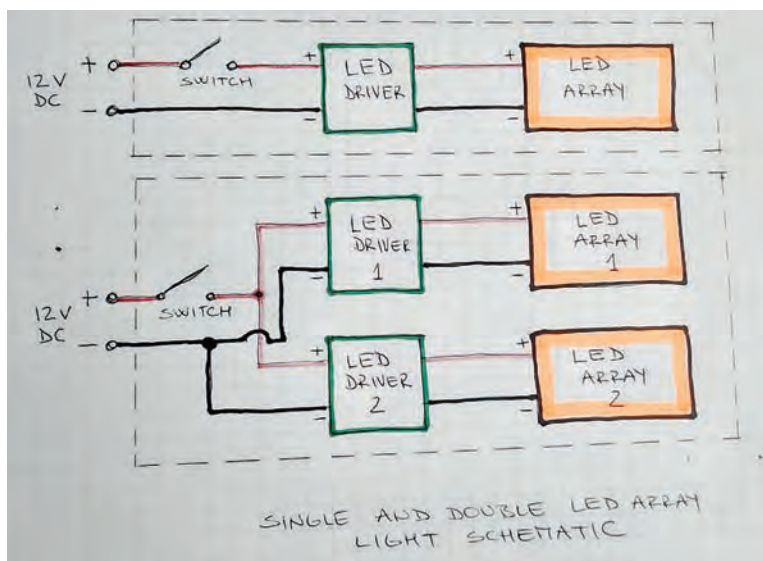 12V
DC
+
-
SWITCH
+
-
LED
DRIVER
+
-
LED
ARRAY
12V
DC
+
-
SWITCH
+
-
LED
DRIVER
1
+
-
LED
ARRAY
1
+
-
LED
DRIVER
2
+
-
LED
ARRAY
2
SINGLE AND DOUBLE LED ARRAY
LIGHT SCHEMATIC